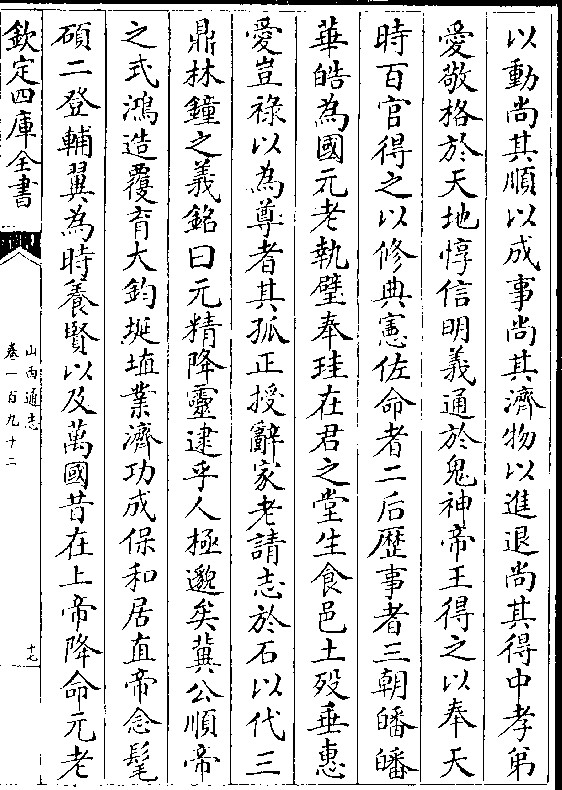 以動尚其順以成事尚其濟物以進退尚其得中孝第
愛敬格於天地惇信明義通於鬼神帝王得之以奉天
時百官得之以修典憲佐命者二后歴事者三朝皤皤
華皓為國元老執璧奉珪在君之堂生食邑土歿垂惠
愛豈祿以為尊者其孤正授辭家老請志於石以代三
鼎林鐘之義銘曰元精降靈逮乎人極邈矣冀公順帝
之式鴻造覆育大鈞埏埴業濟功成保和居直帝念髦
碩二登輔翼為時養賢以及萬國昔在上帝降命元老
欽定四庫全書
山西通志
卷一百九十二
十七